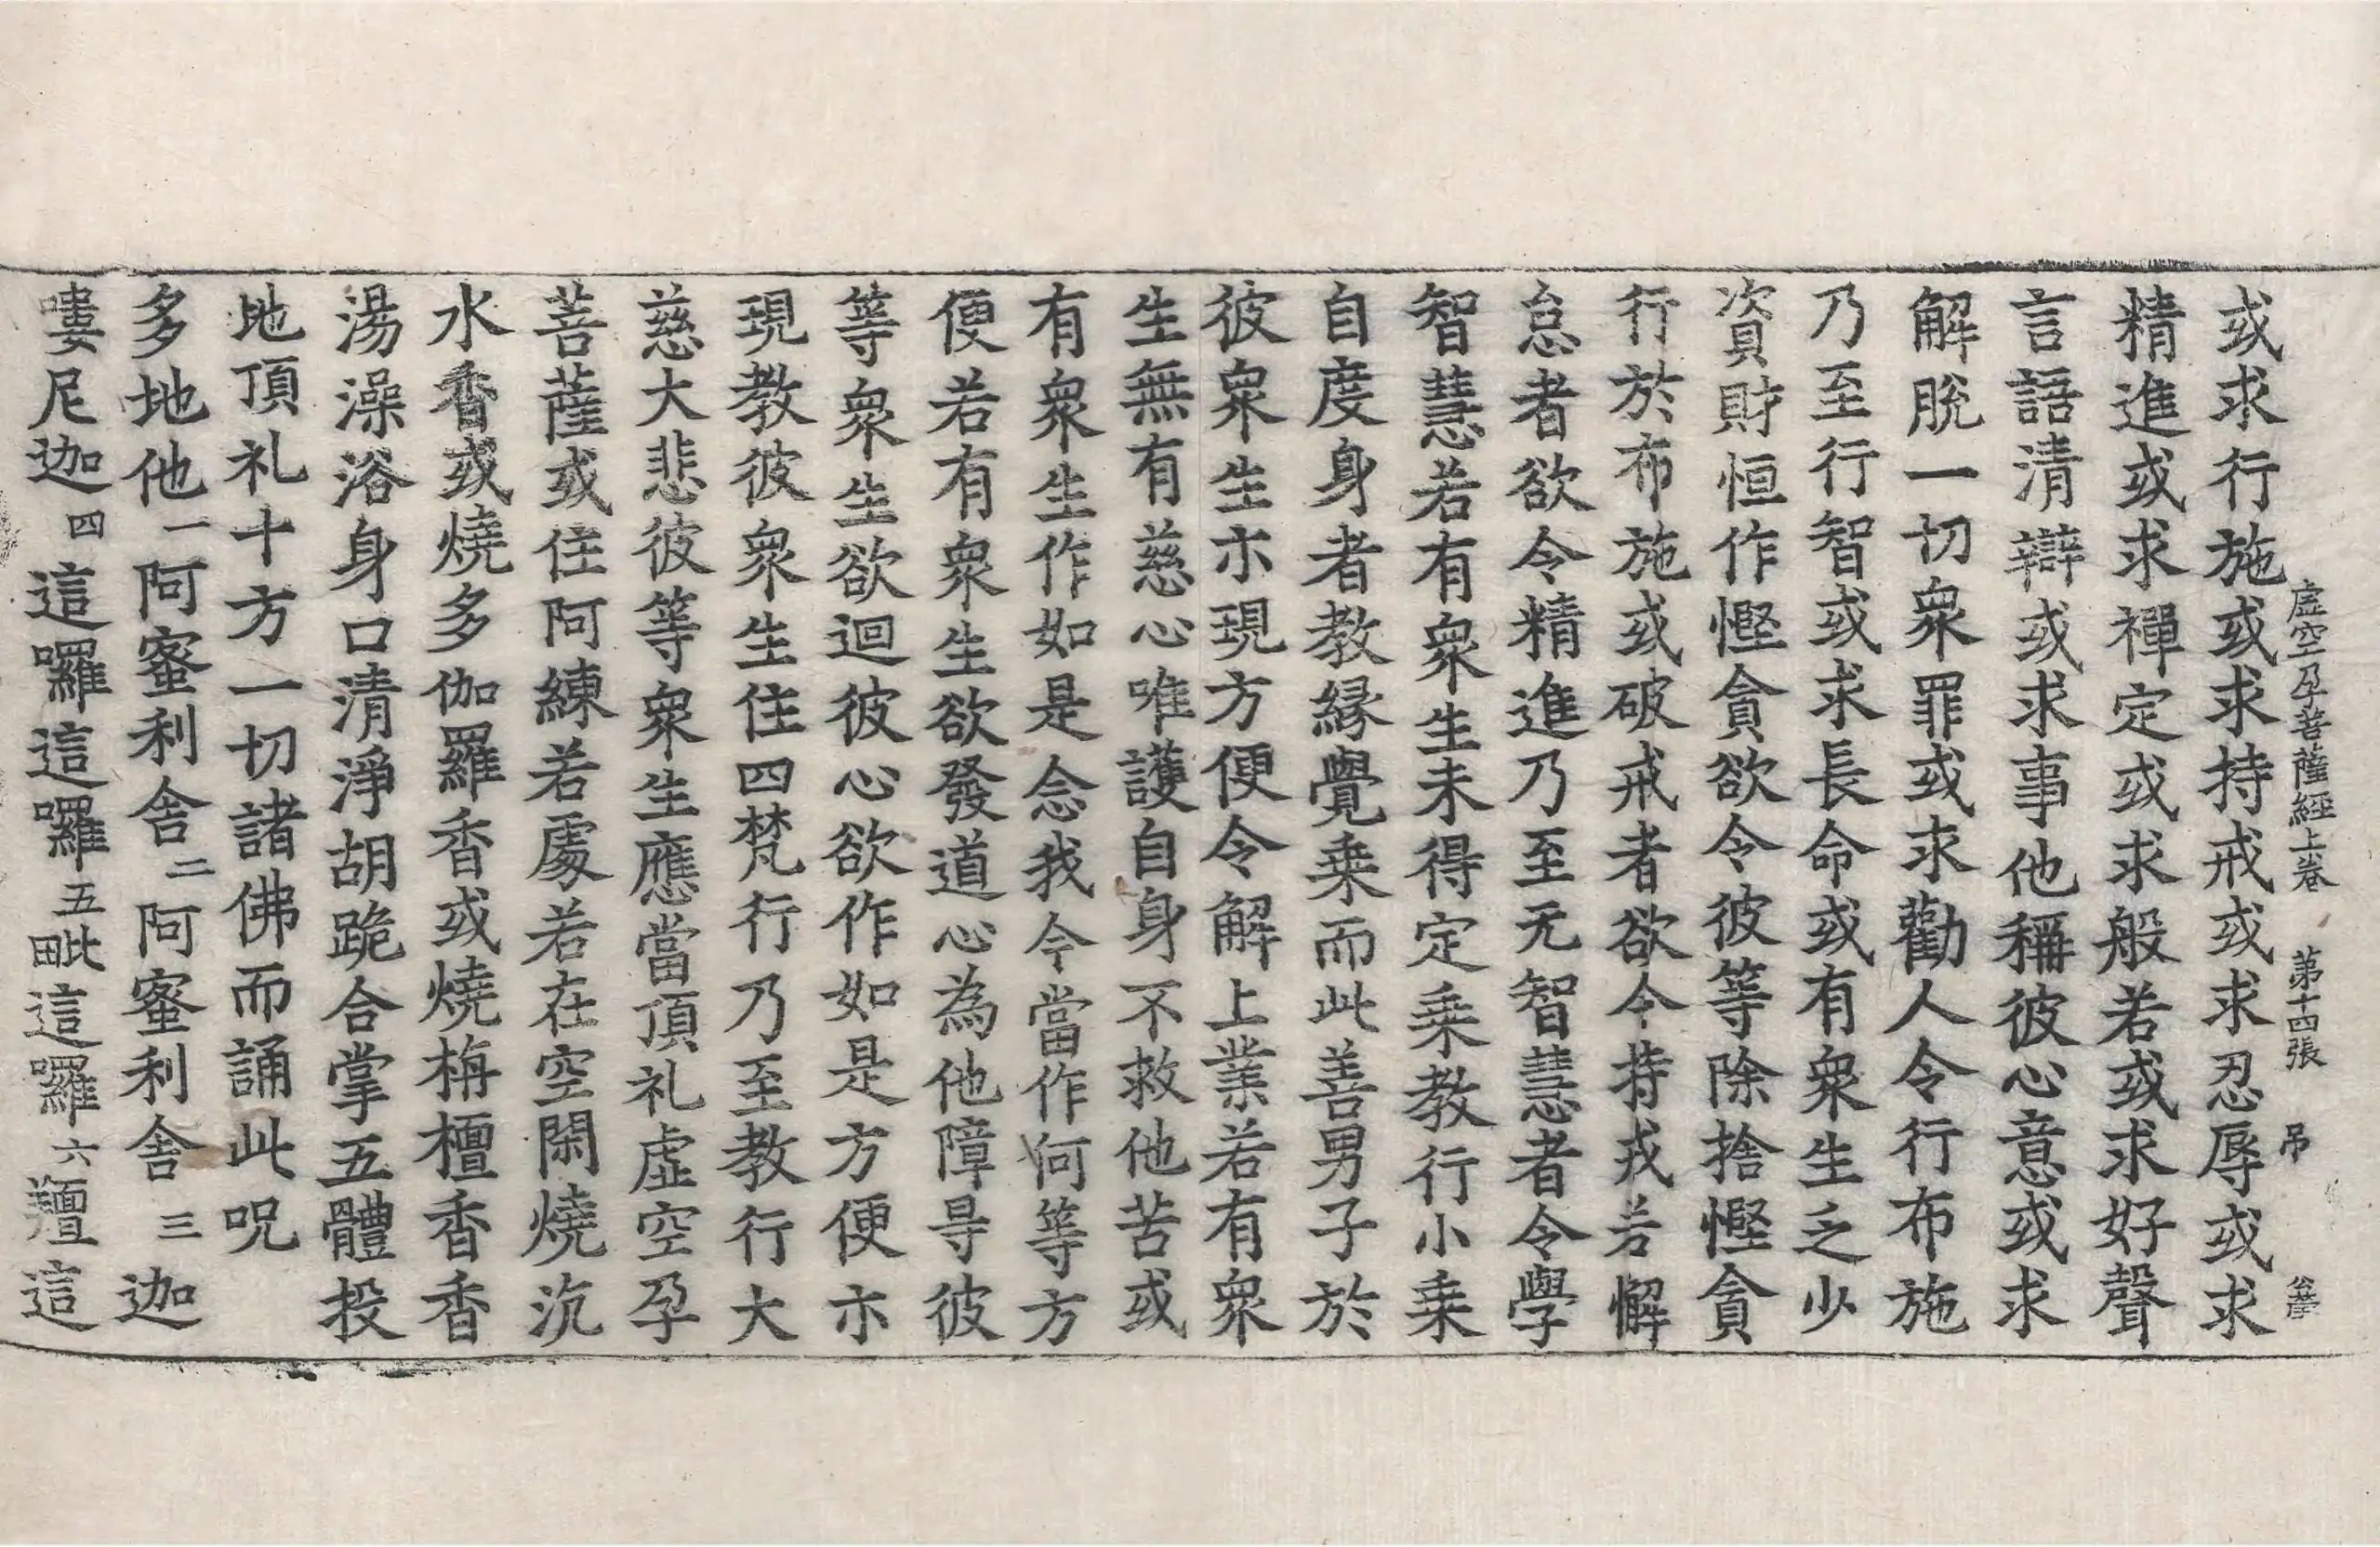 虛空孕菩薩經上卷 第十四張 吊
或求行施或求持戒或求忍辱或求
精進或求禪定或求般若或求好聲
言語清辯或求事他稱彼心意或求
解脫一切衆罪或求勸人令行布施
乃至行智或求長命或有衆生乏少
資財恒作慳貪欲令彼等除捨慳貪
行於布施或破戒者欲令持戒若懈
怠者欲令精進乃至无智慧者令學
智慧若有衆生未得定乗教行小乗
自度身者教緣覺乗而此善男子於
彼衆生亦現方便令解上業若有衆
生無有慈心唯護自身不救他苦或
有衆生作如是念我今當作何等方
便若有衆生欲發道心為他障㝵彼
等衆生欲迴彼心欲作如是方便亦
現教彼衆生住四梵行乃至教行大
慈大悲彼等衆生應當頂礼虛空孕
菩薩或住阿練若處若在空閑燒沉
水香或燒多伽羅香或燒栴檀香香
湯澡浴身口清淨胡跪合掌五體投
地頂礼十方一切諸佛而誦此呪
多地他一阿蜜利舍二阿蜜利舍三迦
嘍尼迦四這囉這囉五毗這囉六羶這